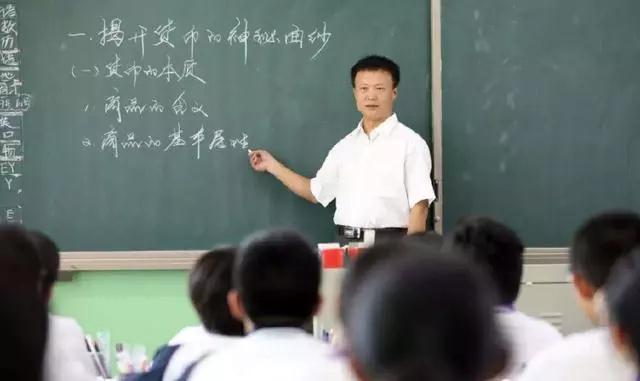 语
数
历
一.揭开货币的神秘面纱
(一)货币的本质
1.商品的含义
2.商品的基本属性